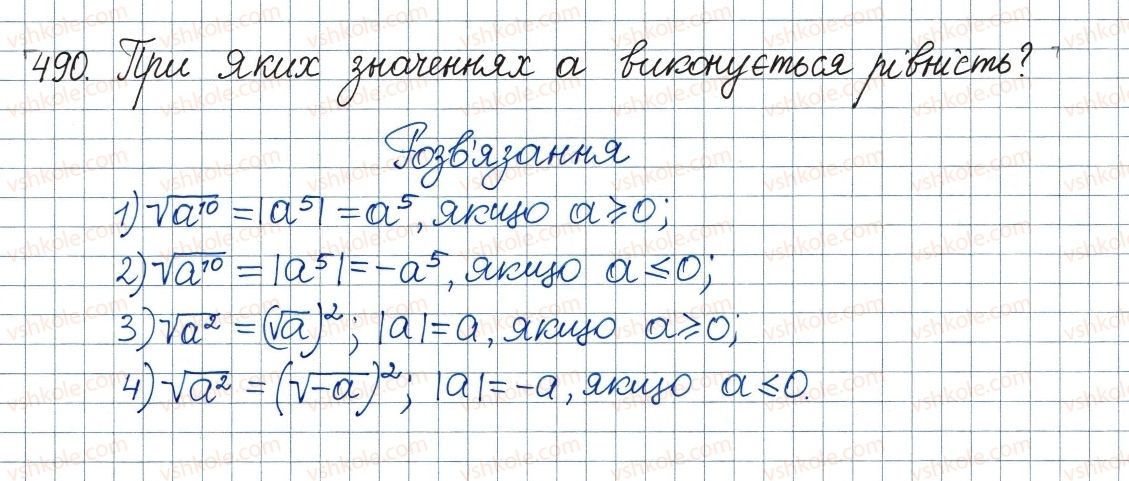 490. При яких значеннях а виконується рівність?
Розв'язання
1) √a¹⁰ = |a⁵| = a⁵, якщо a ≥ 0;
2) √a¹⁰ = |a⁵| = -a⁵, якщо a ≤ 0;
3) √a² = (√a)²; |a| = a, якщо a ≥ 0;
4) √a² = (√-a)²; |a| = -a, якщо a ≤ 0.